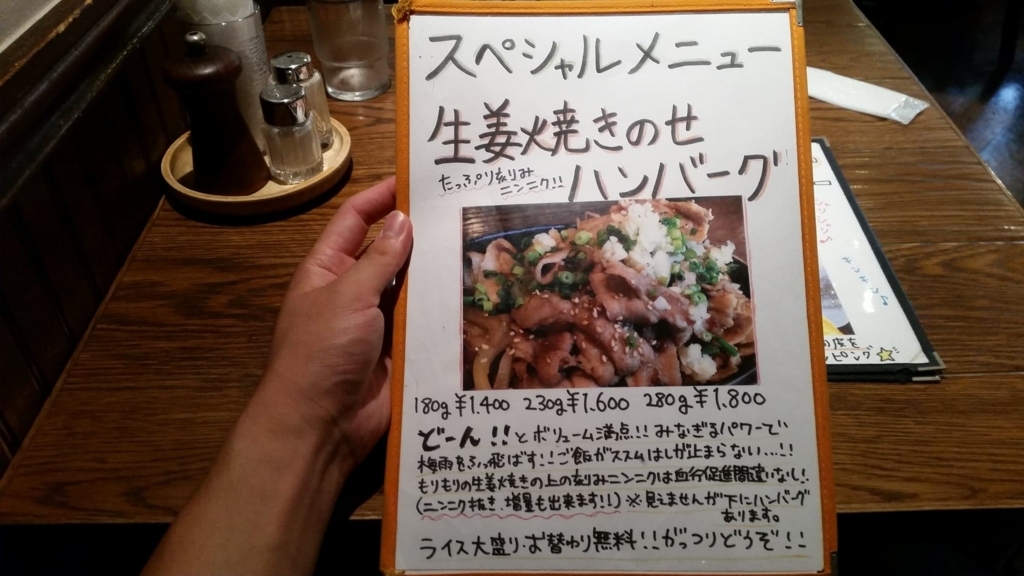 スペシャルメニュー
生姜焼きのせ
ハンバーグ
たっぷり刻み
ニンニク!!
180g ¥1.400 230g ¥1.600 280g ¥1.800
どーん!!とボリューム満点!!みなぎるパワーで
梅雨をぶっ飛ばす!!ご飯がススムはしが止まらない…!!
もりもりの生姜焼きの上の刻みニンニクは血行促進間違いなし!
(ニンニク抜き、増量も出来ます!!)※見えませんが下にハンバーグ
あります。
ライス大盛り・お替わり無料!!がっつりどうぞ!!
ピング☆